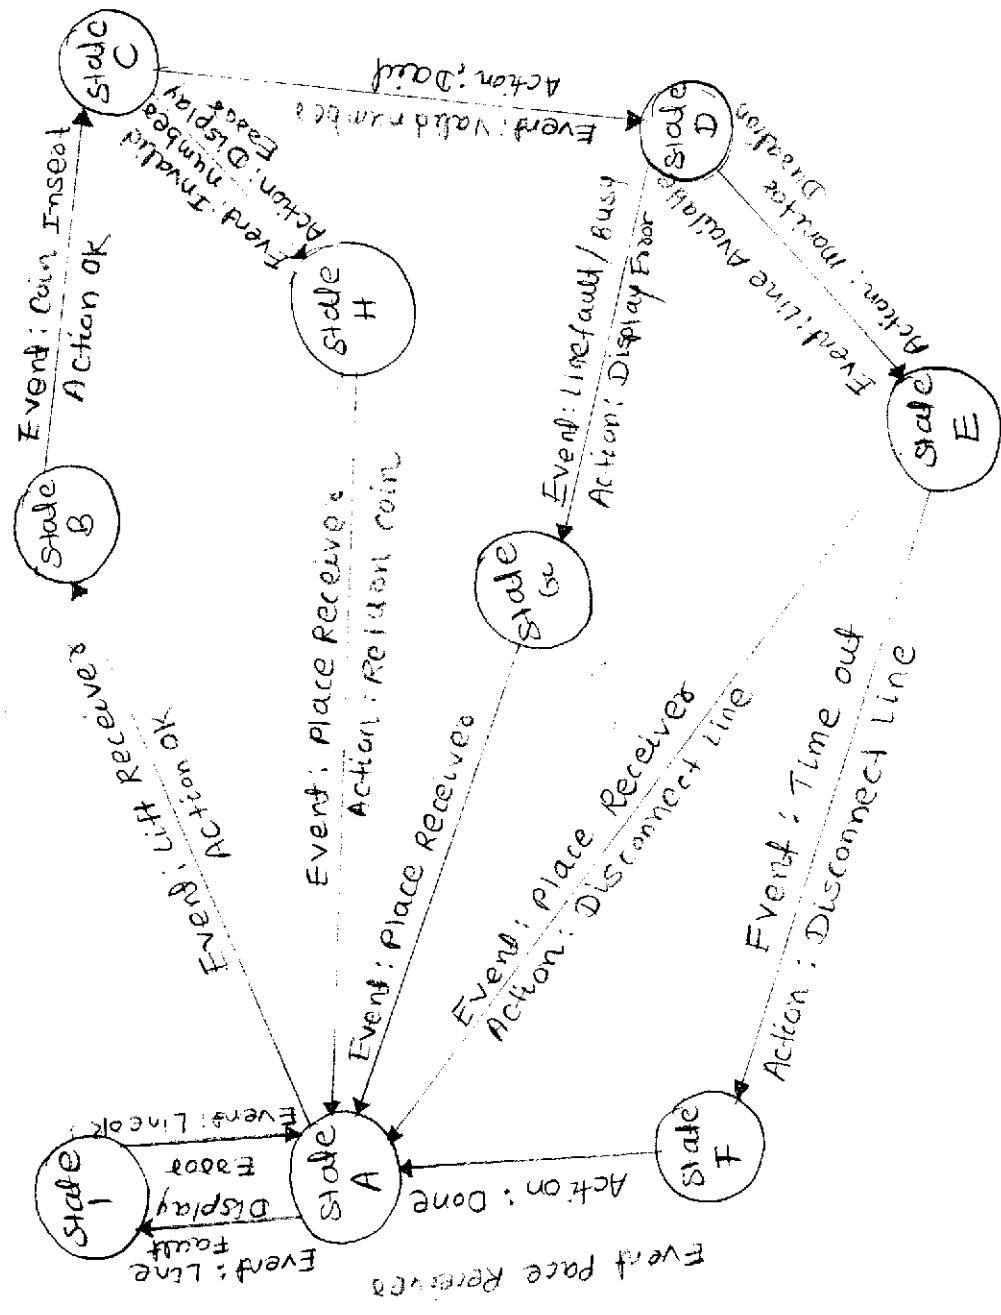 State
I
Event: Line
Fault
Display
Error
Event: Line ok
State
A
Event: Lift Receiver
Action OK
State
B
Event: Coin Insert
Action OK
State
C
Event: Invalid
number
Action: Display
Error
State
H
Event: Place Receiver
Action: Return coin
Event: Valid number
Action: Daid
State
D
Event: Line fault/Busy
Action: Display Error
State
G
Event: Place Receiver
Event: Line Available
Action: monitor
Duration
State
E
Event: Place Receiver
Action: Disconnect Line
Event: Time out
Action: Disconnect Line
State
F
Action: Done
Event Pace Receiver